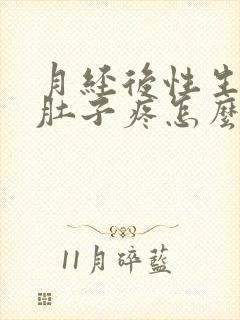 月經後性生
肚子疼怎麼
11月碎藍